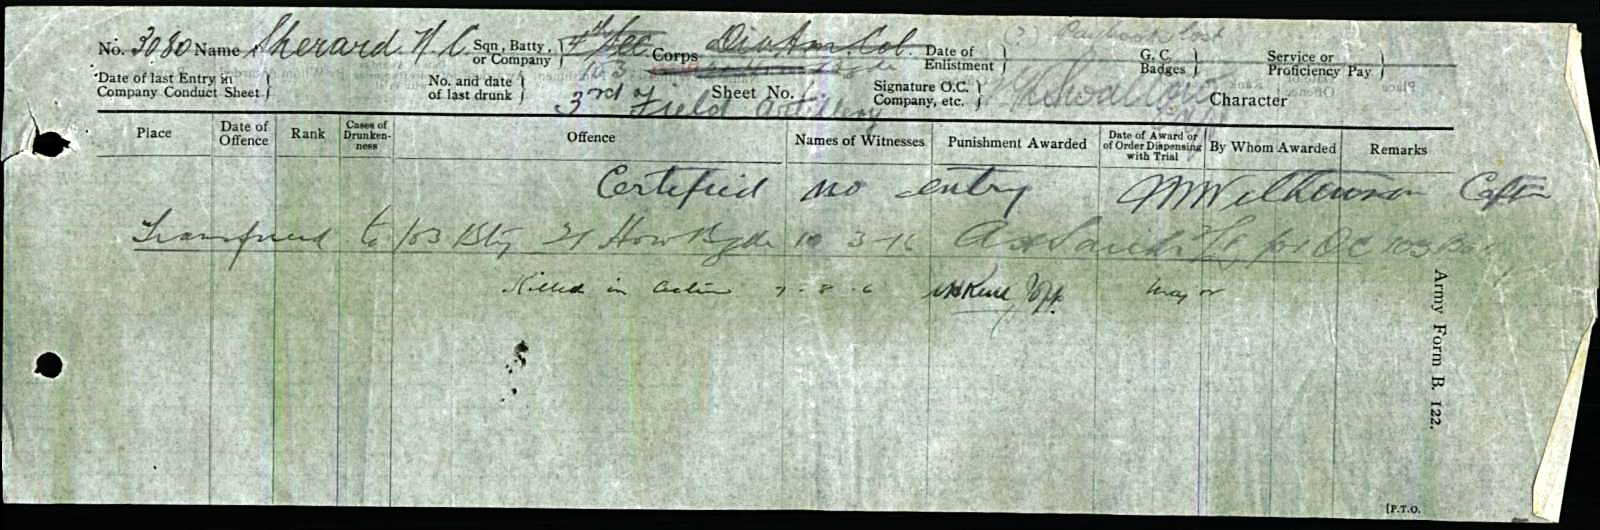 (?) Paybook lost
No. 3080 Name Sherard. H C. Sqn, Batty, or Company 4th Sec Corps Div Am Col. Date of Enlistment G. C. Badges Service or Proficiency Pay
103
Date of last Entry in Company Conduct Sheet No. and date of last drunk Sheet No. 1. Signature O.C. Company, etc. Character
3rd Field Artillery
Place Date of Offence Rank Cases of Drunken-ness Offence Names of Witnesses Punishment Awarded Date of Award or of Order Dispensing with Trial By Whom Awarded Remarks
Certified no entry Capt
Transferred to 103 Bty 21 How Bgde 10 3-16 Lt for OC 103 Bat
Killed in Action 7-8-6 Major
Army Form B. 122.
[P.T.O.